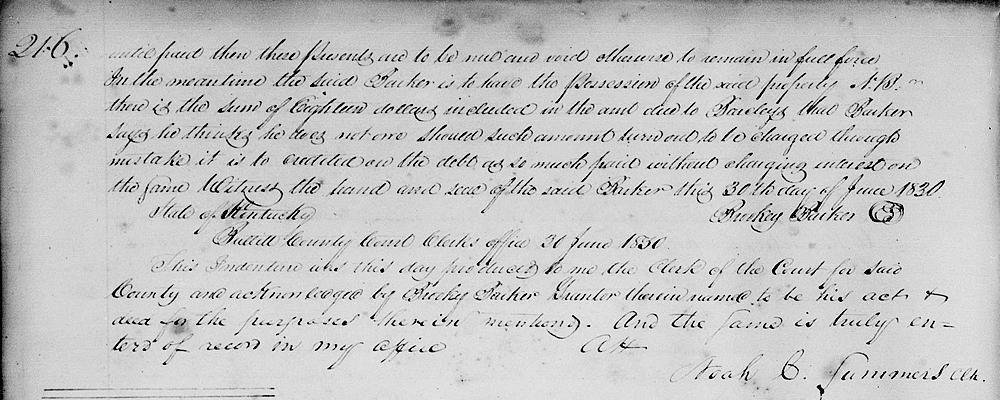 216.
until paid then these Presents are to be null and void otherwise to remain in full force
In the meantime the said Parker is to have the Possession of the said property N.B.
there is the sum of Eighteen dollars included in the amt due to that Parker
says he thinks he does not owe should such amount turn out to be charged through
mistake it is to credited on the debt as so much paid without charging interest on
the same Witness the hand and seal of the said Parker this 30th day of June 1830.
State of Kentucky Parker
Bullitt County Court Clerks office 30 June 1830.
This Indenture was this day produced to me the Clerk of the Court for said
County and acknowledged by Parker Grantor therein named to be his act &
deed for the purposes therein mentiond. And the same is truly en-
terd of record in my office Att
Noah C. Summers Clk.